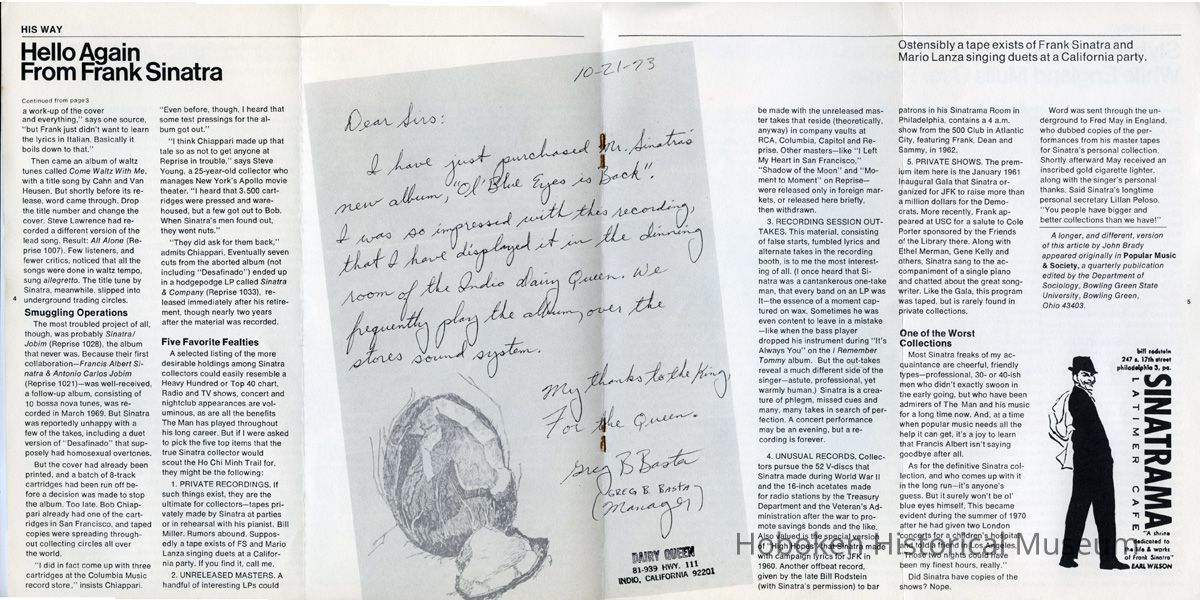 HIS WAY
Hello Again
From Frank Sinatra
Continued from page 3
a work-up of the cover
and everything," says one source,
"but Frank just didn't want to learn
the lyrics in Italian. Basically it
boils down to that."
Then came an album of waltz
tunes called Come Waltz With Me,
with a title song by Cahn and Van
Heusen. But shortly before its re-
lease, word came through. Drop
the title number and change the
cover. Steve Lawrence had re-
corded a different version of the
lead song. Result: All Alone (Re-
prise 1007). Few listeners, and
fewer critics, noticed that all the
songs were done in waltz tempo,
sung allegretto. The title tune by
Sinatra, meanwhile, slipped into
underground trading circles.
4
Smuggling Operations
The most troubled project of all,
though, was probably Sinatra/
Jobim (Reprise 1028), the album
that never was. Because their first
collaboration—Francis Albert Si-
natra & Antonio Carlos Jobim
(Reprise 1021)—was well-received,
a follow-up album, consisting of
10 bossa nova tunes, was re-
corded in March 1969. But Sinatra
was reportedly unhappy with a
few of the takes, including a duet
version of "Desafinado" that sup-
posedly had homosexual overtones.
But the cover had already been
printed, and a batch of 8-track
cartridges had been run off be-
fore a decision was made to stop
the album. Too late. Bob Chiap-
pari already had one of the cart-
ridges in San Francisco, and taped
copies were spreading through-
out collecting circles all over
the world.
"I did in fact come up with three
cartridges at the Columbia Music
record store," insists Chiappari.
"Even before, though, I heard that
some test pressings for the al-
bum got out."
"I think Chiappari made up that
tale so as not to get anyone at
Reprise in trouble," says Steve
Young, a 25-year-old collector who
manages New York's Apollo movie
theater. "I heard that 3,500 cart-
ridges were pressed and ware-
housed, but a few got out to Bob.
When Sinatra's men found out,
they went nuts."
"They did ask for them back,"
admits Chiappari. Eventually seven
cuts from the aborted album (not
including "Desafinado") ended up
in a hodgepodge LP called Sinatra
& Company (Reprise 1033), re-
leased immediately after his retire-
ment, though nearly two years
after the material was recorded.
Five Favorite Fealties
A selected listing of the more
desirable holdings among Sinatra
collectors could easily resemble a
Heavy Hundred or Top 40 chart.
Radio and TV shows, concert and
nightclub appearances are vol-
uminous, as are all the benefits
The Man has played throughout
his long career. But if I were asked
to pick the five top items that the
true Sinatra collector would
scout the Ho Chi Minh Trail for,
they might be the following:
1. PRIVATE RECORDINGS. If
such things exist, they are the
ultimate for collectors—tapes pri-
vately made by Sinatra at parties
or in rehearsal with his pianist. Bill
Miller. Rumors abound. Suppos-
edly a tape exists of FS and Mario
Lanza singing duets at a Califor-
nia party. If you find it, call me.
2. UNRELEASED MASTERS. A
handful of interesting LPs could
10-21-73
Dear Sirs:
I have just purchased Mr. Sinatra's
new album, "Ol' Blue Eyes is Back".
I was so impressed with this recording,
that I have displayed it in the dinning
room of the Indio Dairy Queen. We
frequently play the album, over the
stores sound system.
My thanks to the King,
For the Queen.
Greg B Basta
(GREG B. BASTA
Manager)
DAIRY QUEEN
81-939 HWY. 111
INDIO, CALIFORNIA 92201
Ostensibly a tape exists of Frank Sinatra and
Mario Lanza singing duets at a California party.
be made with the unreleased mas-
ter takes that reside (theoretically,
anyway) in company vaults at
RCA, Columbia, Capitol and Re-
prise. Other masters—like "I Left
My Heart in San Francisco,"
"Shadow of the Moon" and "Mo-
ment to Moment" on Reprise—
were released only in foreign mar-
kets, or released here briefly,
then withdrawn.
3. RECORDING SESSION OUT-
TAKES. This material, consisting
of false starts, fumbled lyrics and
alternate takes in the recording
booth, is to me the most interest-
ing of all. (I once heard that Si-
natra was a cantankerous one-take
man, that every band on an LP was
It—the essence of a moment cap-
tured on wax. Sometimes he was
even content to leave in a mistake
—like when the bass player
dropped his instrument during "It's
Always You" on the I Remember
Tommy album. But the out-takes
reveal a much different side of the
singer—astute, professional, yet
warmly human.) Sinatra is a crea-
ture of phlegm, missed cues and
many, many takes in search of per-
fection. A concert performance
may be an evening, but a re-
cording is forever.
4. UNUSUAL RECORDS. Collec-
tors pursue the 52 V-discs that
Sinatra made during World War II
and the 16-inch acetates made
for radio stations by the Treasury
Department and the Veteran's Ad-
ministration after the war to pro-
mote savings bonds and the like.
Also valued is the special version
of "High Hopes" that Sinatra made
with campaign lyrics for JFK in
1960. Another offbeat record,
given by the late Bill Rodstein
(with Sinatra's permission) to bar
patrons in his Sinatrama Room in
Philadelphia, contains a 4 a.m.
show from the 500 Club in Atlantic
City, featuring Frank, Dean and
Sammy, in 1962.
5. PRIVATE SHOWS. The prem-
ium item here is the January 1961
Inaugural Gala that Sinatra or-
ganized for JFK to raise more than
a million dollars for the Demo-
crats. More recently, Frank ap-
peared at USC for a salute to Cole
Porter sponsored by the Friends
of the Library there. Along with
Ethel Merman, Gene Kelly and
others, Sinatra sang to the ac-
companiment of a single piano
and chatted about the great song-
writer. Like the Gala, this program
was taped, but is rarely found in
private collections.
One of the Worst
Collections
Most Sinatra freaks of my ac-
quaintance are cheerful, friendly
types—professional, 30- or 40-ish
men who didn't exactly swoon in
the early going, but who have been
admirers of The Man and his music
for a long time now. And, at a time
when popular music needs all the
help it can get, it's a joy to learn
that Francis Albert isn't saying
goodbye after all.
As for the definitive Sinatra col-
lection, and who comes up with it
in the long run—it's anyone's
guess. But it surely won't be ol'
blue eyes himself. This became
evident during the summer of 1970
after he had given two London
"Those two nights could have
been my finest hours, really."
Did Sinatra have copies of the
shows? Nope.
Word was sent through the un-
derground to Fred May in England,
who dubbed copies of the per-
formances from his master tapes
for Sinatra's personal collection.
Shortly afterward May received an
inscribed gold cigarette lighter,
along with the singer's personal
thanks. Said Sinatra's longtime
personal secretary Lillan Peloso.
"You people have bigger and
better collections than we have!"
A longer, and different, version
of this article by John Brady
appeared originally in Popular Music
& Society, a quarterly publication
edited by the Department of
Sociology, Bowling Green State
University, Bowling Green,
Ohio 43403.
5
bill rodstein
247 s. 17th street
philadelphia 3, pa.
SINATRAMA
LATIMER CAFE
"A shrine
dedicated to
the life & works
of Frank Sinatra"
EARL WILSON
Hoboken Historical Museum